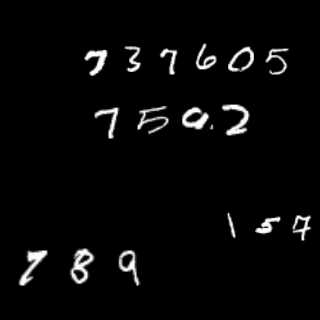 737605
7592
157
789